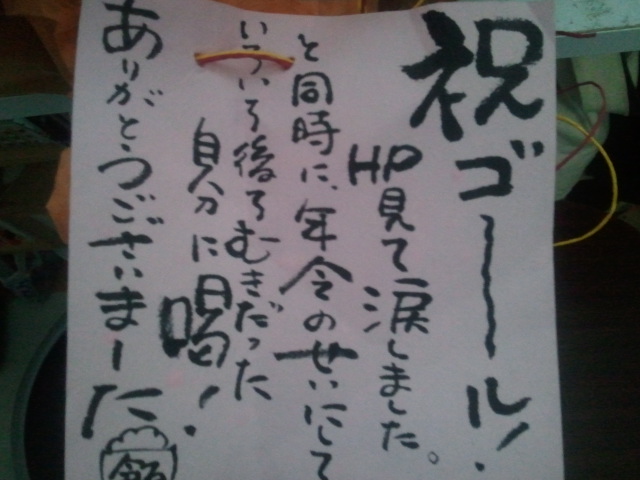 祝ゴール!
HP見て涙しました。
と同時に、年令のせいにして
いろいろ後ろむきだった
自分に喝!
ありがとうございました